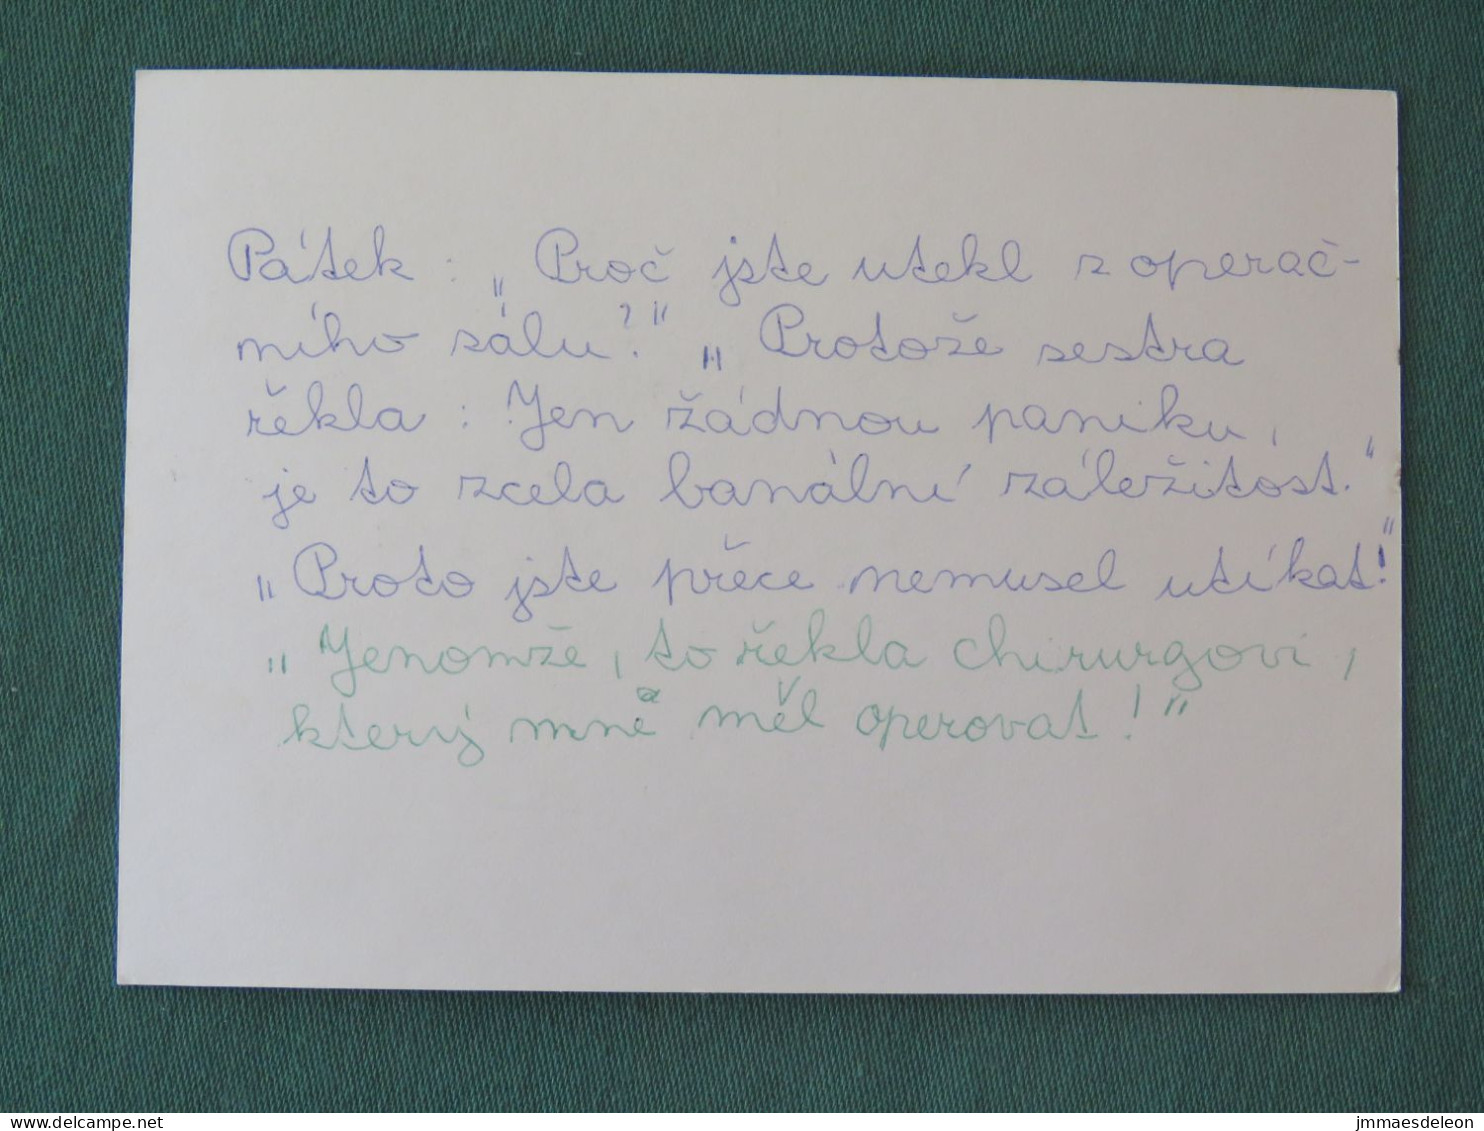 Pátek: „Proč jste utekl z operač-
ního sálu?" „Protože sestra
řekla: Jen žádnou paniku,
je to zcela banální záležitost."
„Proto jste přece nemusel utíkat!"
„Jenomže, to řekla chirurgovi,
který mně měl operovat!"
www.delcampe.net
jmmaesdeleon